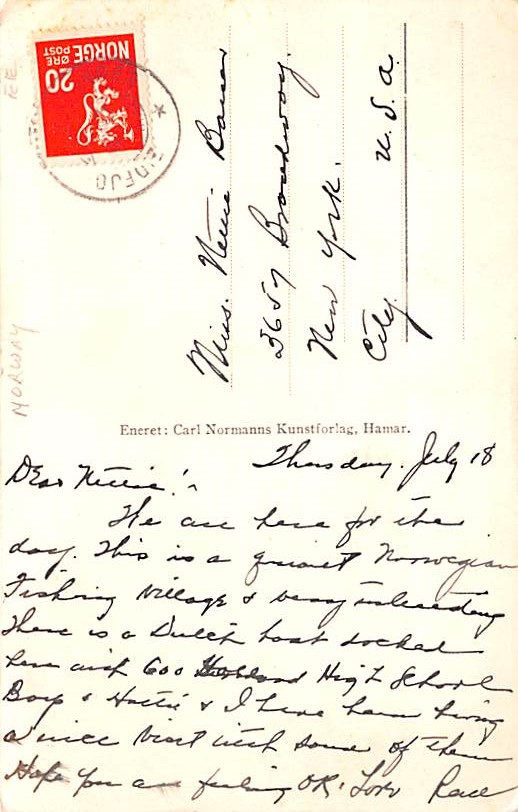 20
NORGE
ØRE
POST
EIDFJO
NORWAY
Miss. Nettie
3657 Broadway.
New York.
City.
U.S.a.
Eneret: Carl Normanns Kunstforlag, Hamar.
Thursday. July 18
Dear Nettie!
We are here for the
day. This is a quaint Norwegian
Fishing Village & very interesting
There is a Dutch boat docked
here with 600 High School
Boys & Hattie & I have been having
a nice visit with some of them
Hope you are feeling OK. Love